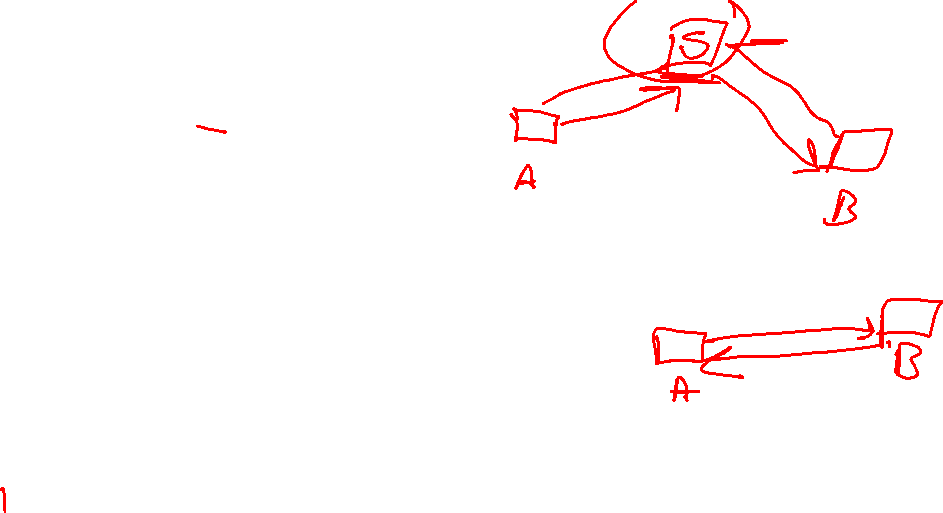 S
A
B
A
B